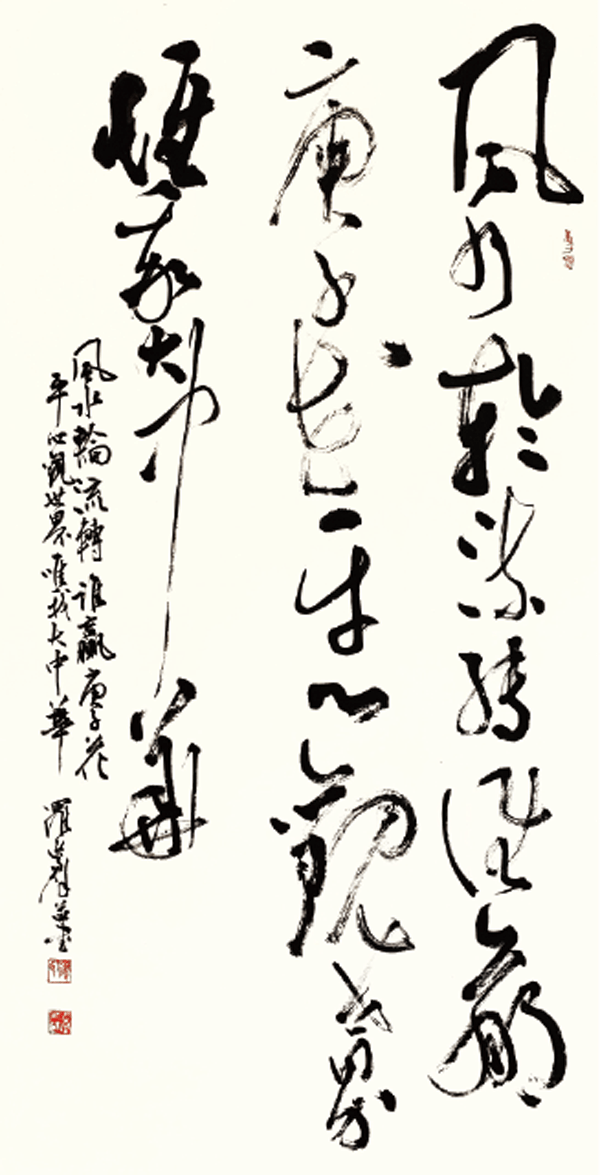 風水輪流轉誰贏
庚子花平心觀世界
唯我大中華
風水輪流轉誰贏庚子花
平心觀世界唯我大中華